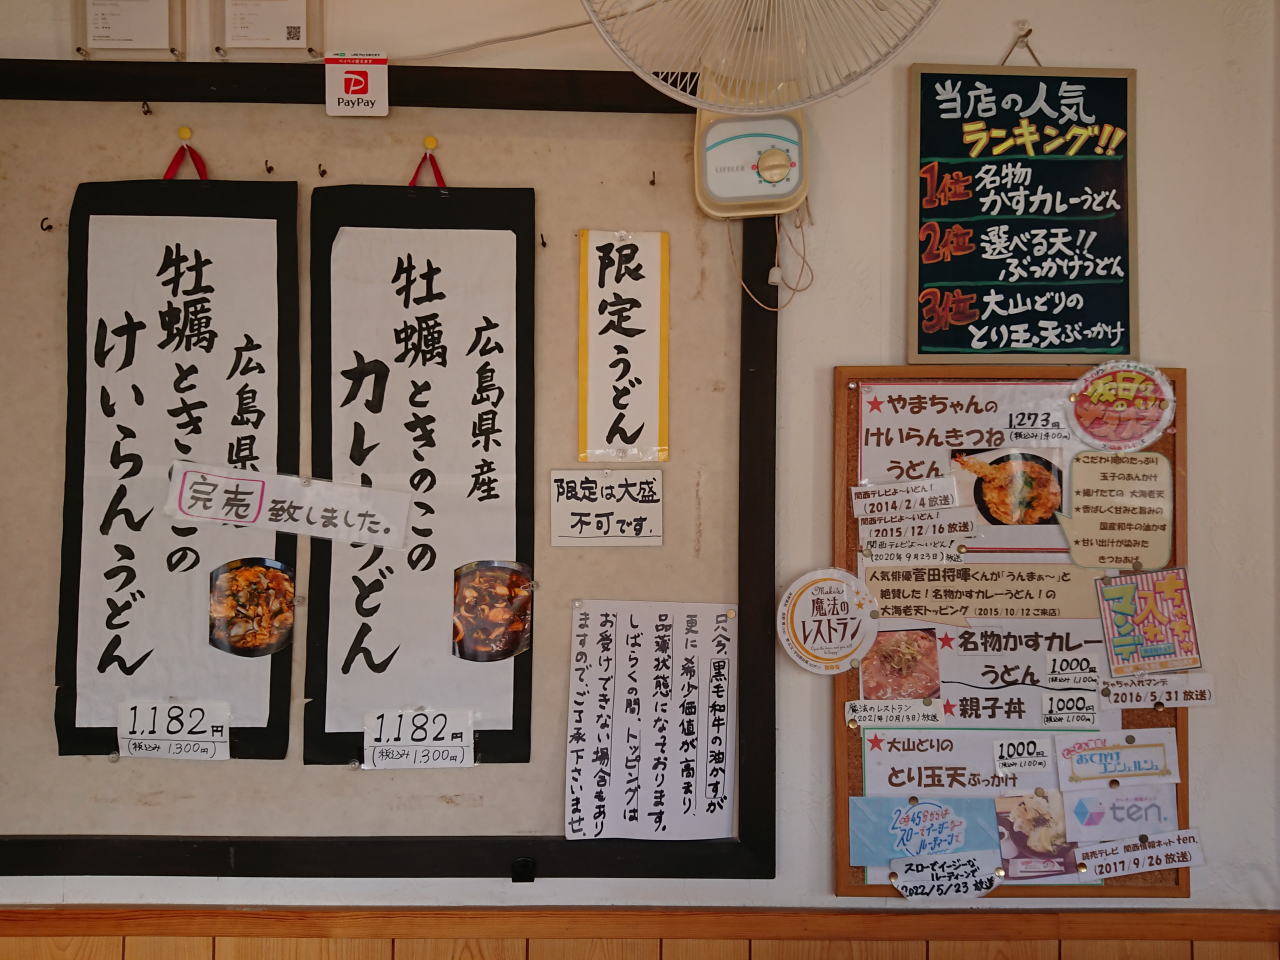 PayPay
広島県産
牡蠣ときのこの
カレーうどん
1,182円
(税込み 1,300円)
広島県
牡蠣ときのこの
けいらんうどん
1,182円
(税込み 1,300円)
完売致しました。
限定うどん
限定は大盛
不可です.
只今、黒毛和牛の油かすが
更に希少価値が高まり、
品薄状態になっております。
しばらくの間、トッピングは
お受けできない場合もあり
ますので、ご了承下さいませ。
LIFELEX
当店の人気
ランキング!!
1位 名物
かすカレーうどん
2位 選べる天!!
ぶっかけうどん
3位 大山どりの
とり玉・天ぶっかけ
★やまちゃんの
けいらんきつね
うどん
1,273円
(税込み1,400円)
★こだわり卵のたっぷり
玉子のあんかけ
★揚げたての 大海老天
★香ばしく甘みと旨みの
国産和牛の油かす
★甘い出汁が染みた
きつねあげ
関西テレビよ〜いどん!
(2014/2/4放送)
関西テレビよ〜いどん!
(2015/12/16放送)
関西テレビよ〜いどん!
(2020年9月23日)放送
人気俳優菅田将暉くんが「うんまぁ〜」と
絶賛した!名物かすカレーうどん!の
大海老天トッピング (2015/10/12ご来店)
魔法の
レストラン
★名物かすカレー
うどん
1,000円
(税込み1,100円)
魔法のレストラン
(2021年10月13日)放送
★親子丼
1,000円
(税込み1,100円)
ちゃちゃ
入れ
マンデー
ちゃちゃ入れマンデー
(2016/5/31放送)
★大山どりの
とり玉天ぶっかけ
1,000円
(税込み1,100円)
おでかけ
コンシェルジュ
2時45分からは
スローでイージーな
ルーティーンで
スローでイージーな
ルーティーンで
(2022/5/23放送)
ten.
読売テレビ 関西情報ネットten.
(2017/9/26放送)